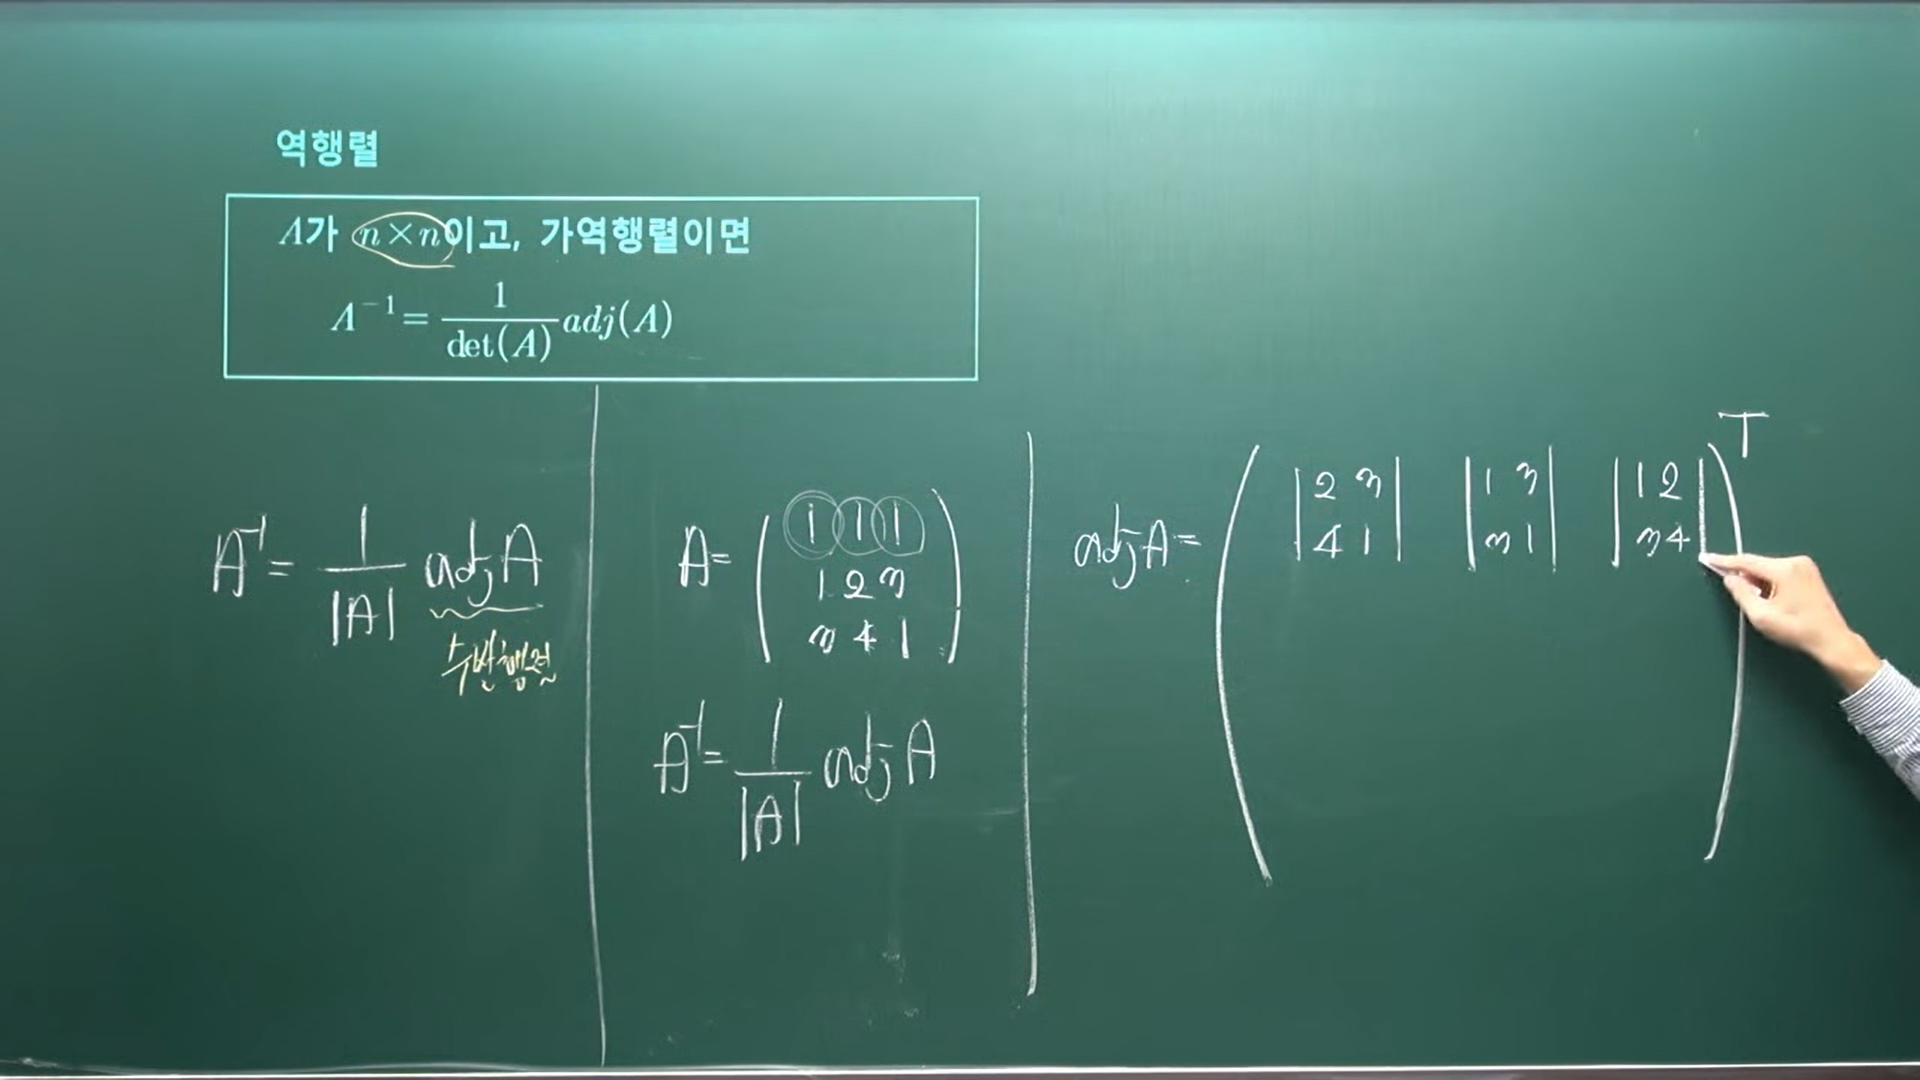 역행렬
A가 n×n이고, 가역행렬이면
A⁻¹ = 1/det(A) adj(A)
A⁻¹ = 1/|A| adj A
수반행렬
A = ( 1 1 1
1 2 3
3 4 1 )
A⁻¹ = 1/|A| adj A
adj A = ( |2 3| |1 3| |1 2| )ᵀ
|4 1| |3 1| |3 4|